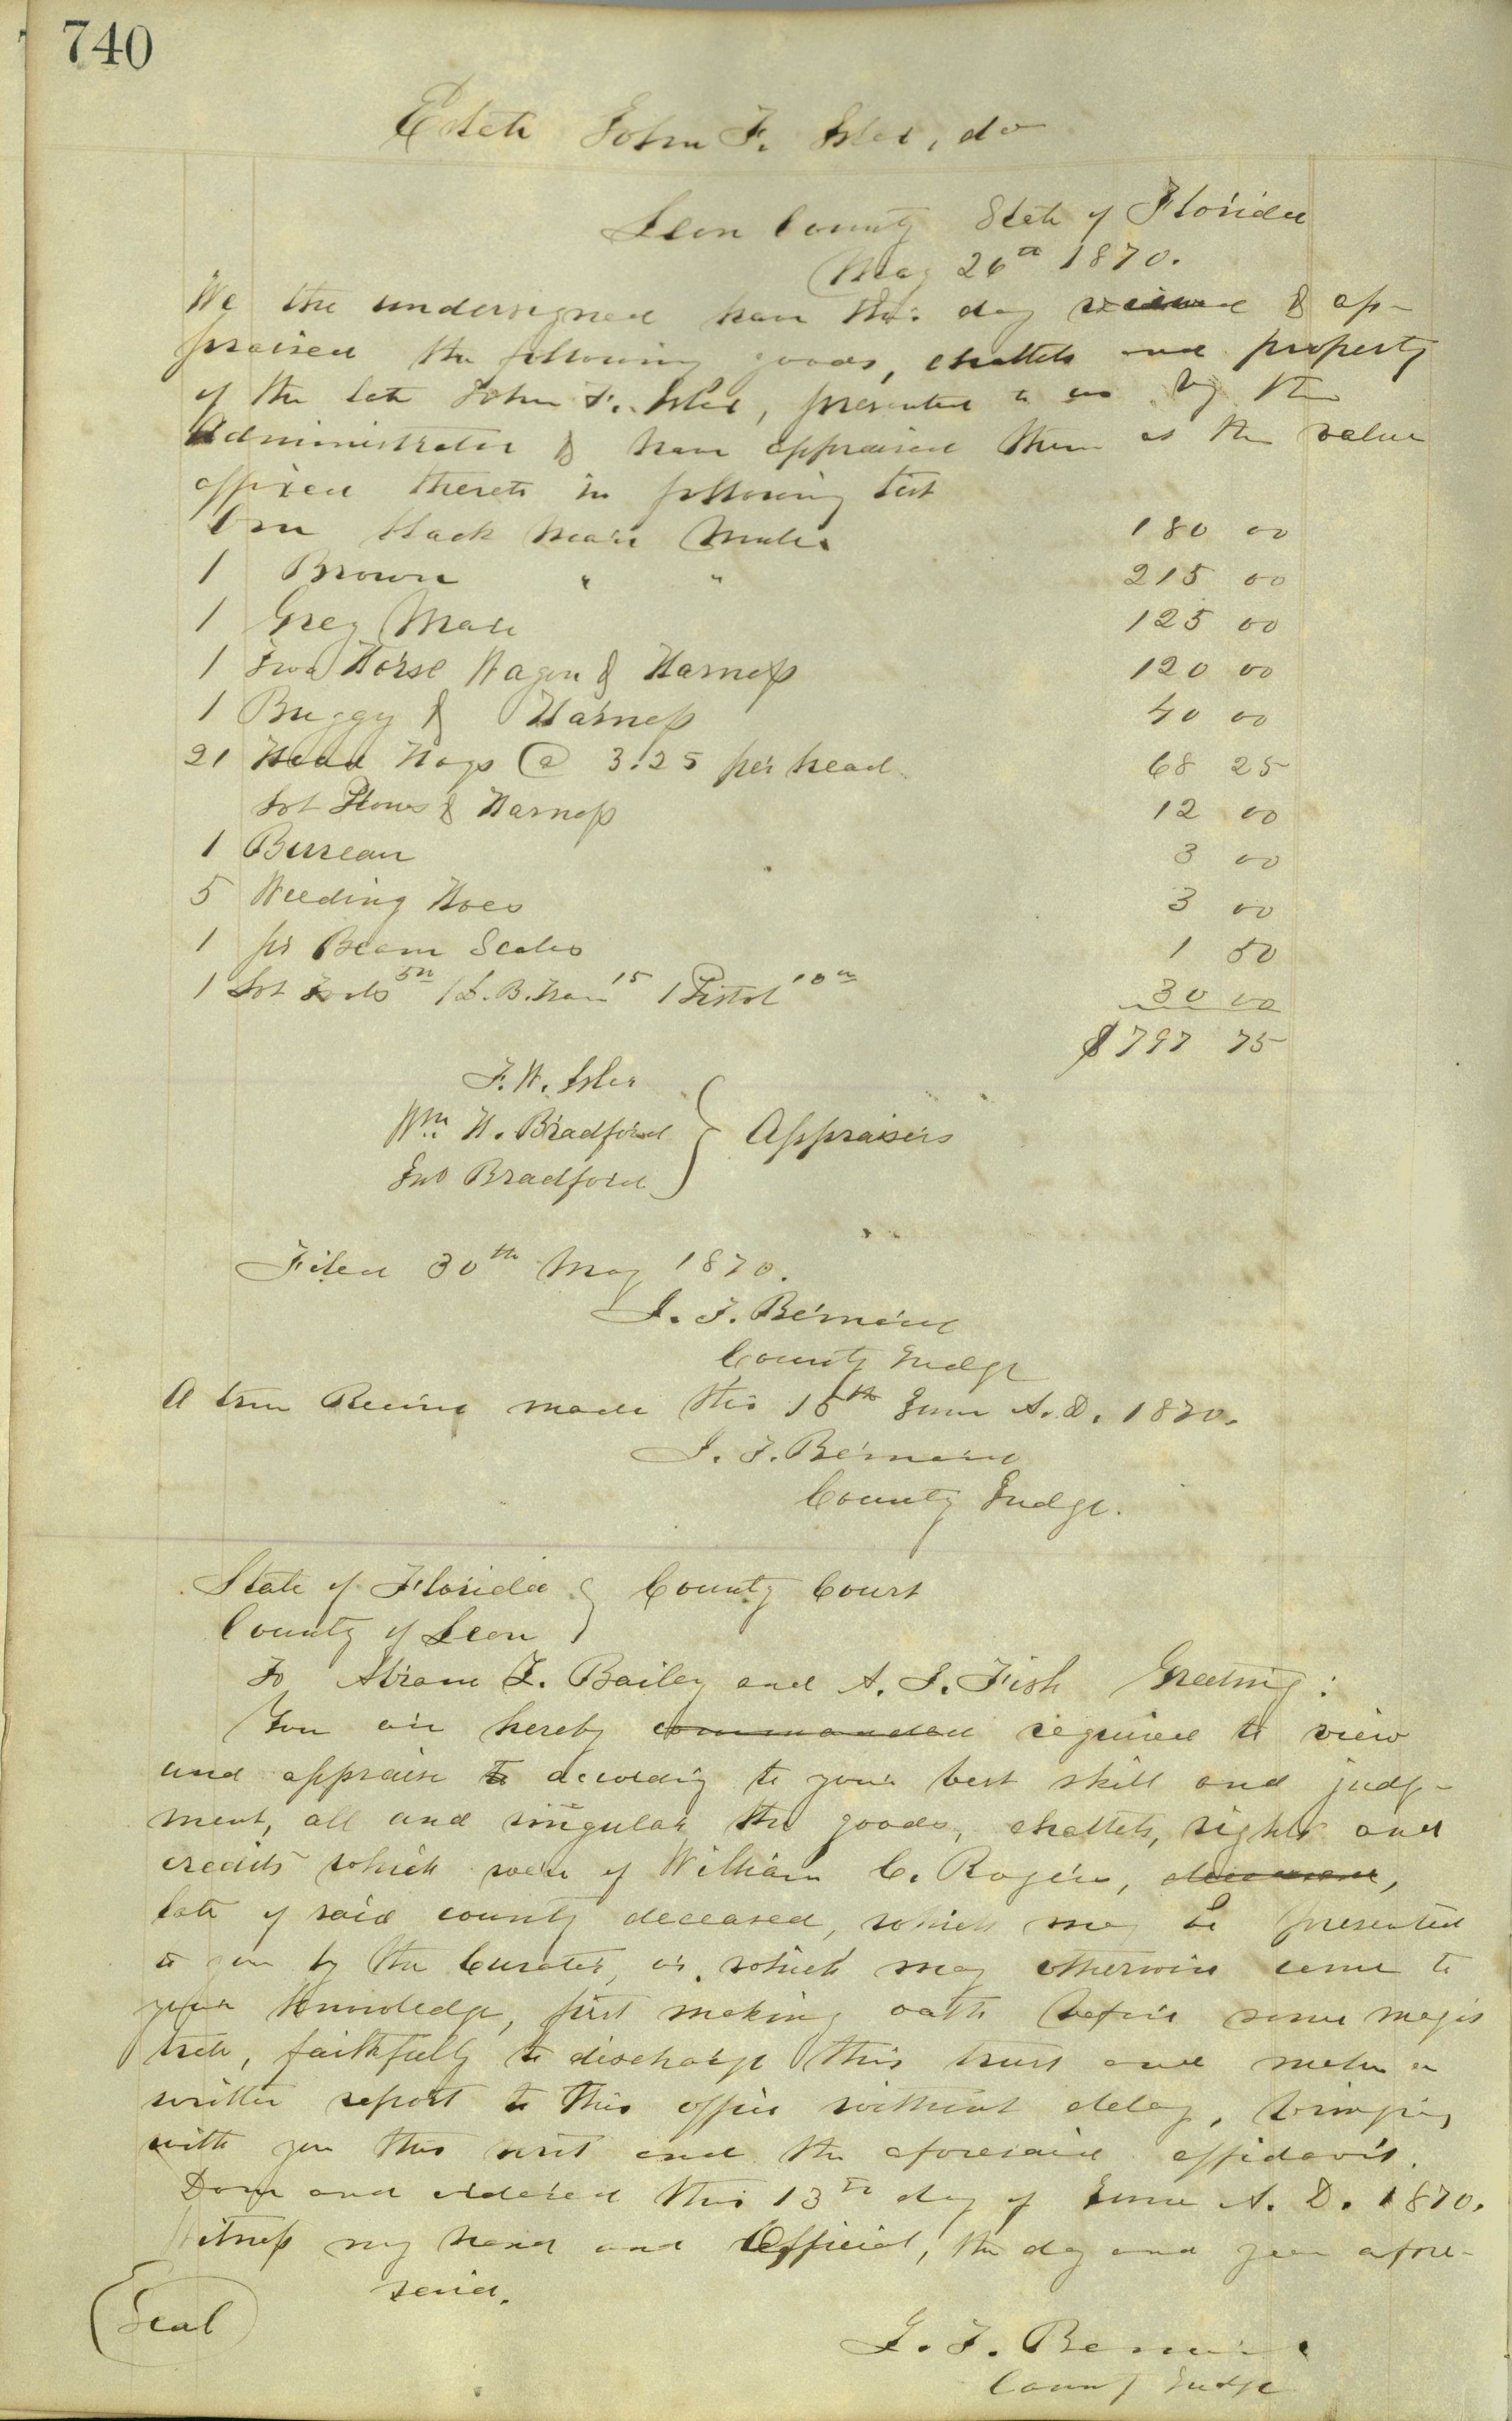 740
Estate John F. Isler, do
Leon County State of Florida
May 26th 1870.
We the undersigned have this day viewed & ap-
praised the following goods, chattels and property
of the late John F. Isler, presented to us by the
Administrator & have appraised them at the value
affixed thereto in following list
One black mare Mule 180 00
1 Brown " " 215 00
1 Grey Mare 125 00
1 Two Horse Wagon & Harness 120 00
1 Buggy & Harness 40 00
21 Head Hogs @ 3.25 per head 68 25
Lot Plows & Harness 12 00
1 Bureau 3 00
5 Weeding Hoes 3 00
1 pr Beam Scales 1 50
1 Lot Tools 5.00 1 D. B. 15 1 Pistol 10.00 30 00
$797 75
F. W. Isler
Wm H. Bradford } Appraisers
Jno Bradford
Filed 30th May 1870.
J. T. Bernard
County Judge
A true Record made this 15th June A. D. 1870.
J. T. Bernard
County Judge.
State of Florida } County Court
County of Leon
To Abram Z. Bailey and A. S. Fish Greeting:
You are hereby commanded required to view
and appraise to according to your best skill and judg-
ment, all and singular the goods, chattels, rights and
credits which were of William C. Rogers, deceased,
late of said county deceased, which may be presented
to you by the Curator, or which may otherwise come to
your knowledge, first making oath before some magis
trate, faithfully to discharge this trust and make a
written report to this office without delay, bringing
with you this writ and the aforesaid affidavit.
Done and ordered this 13th day of June A. D. 1870.
Witness my hand and Official, the day and year afore-
said.
Seal
J. T. Bernard
County Judge